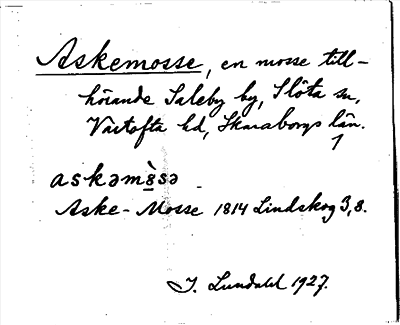 Askemosse, en mosse till-
hörande Saleby by, Slöta sn,
Vartofta hd, Skaraborgs län.
1
askəm̀ɞsə
Aske-Mosse 1814 Lindskog 3,8.
J. Lundahl 1927.